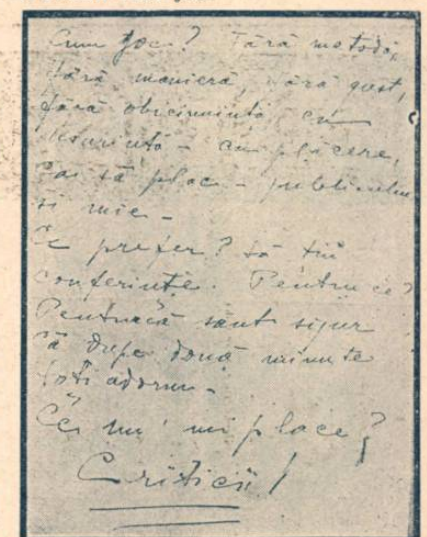 Cum joc? Fără metodă,
fără manieră, fără gust,
fără obicinuință, cu
- cu plăcere,
să plac - publicului
și mie -
Ce prefer? să țiu
conferințe. Pentru ce?
Pentrucă sant sigur
că după două minute
toți adorm -
Ce nu' mi place?
Criticii!